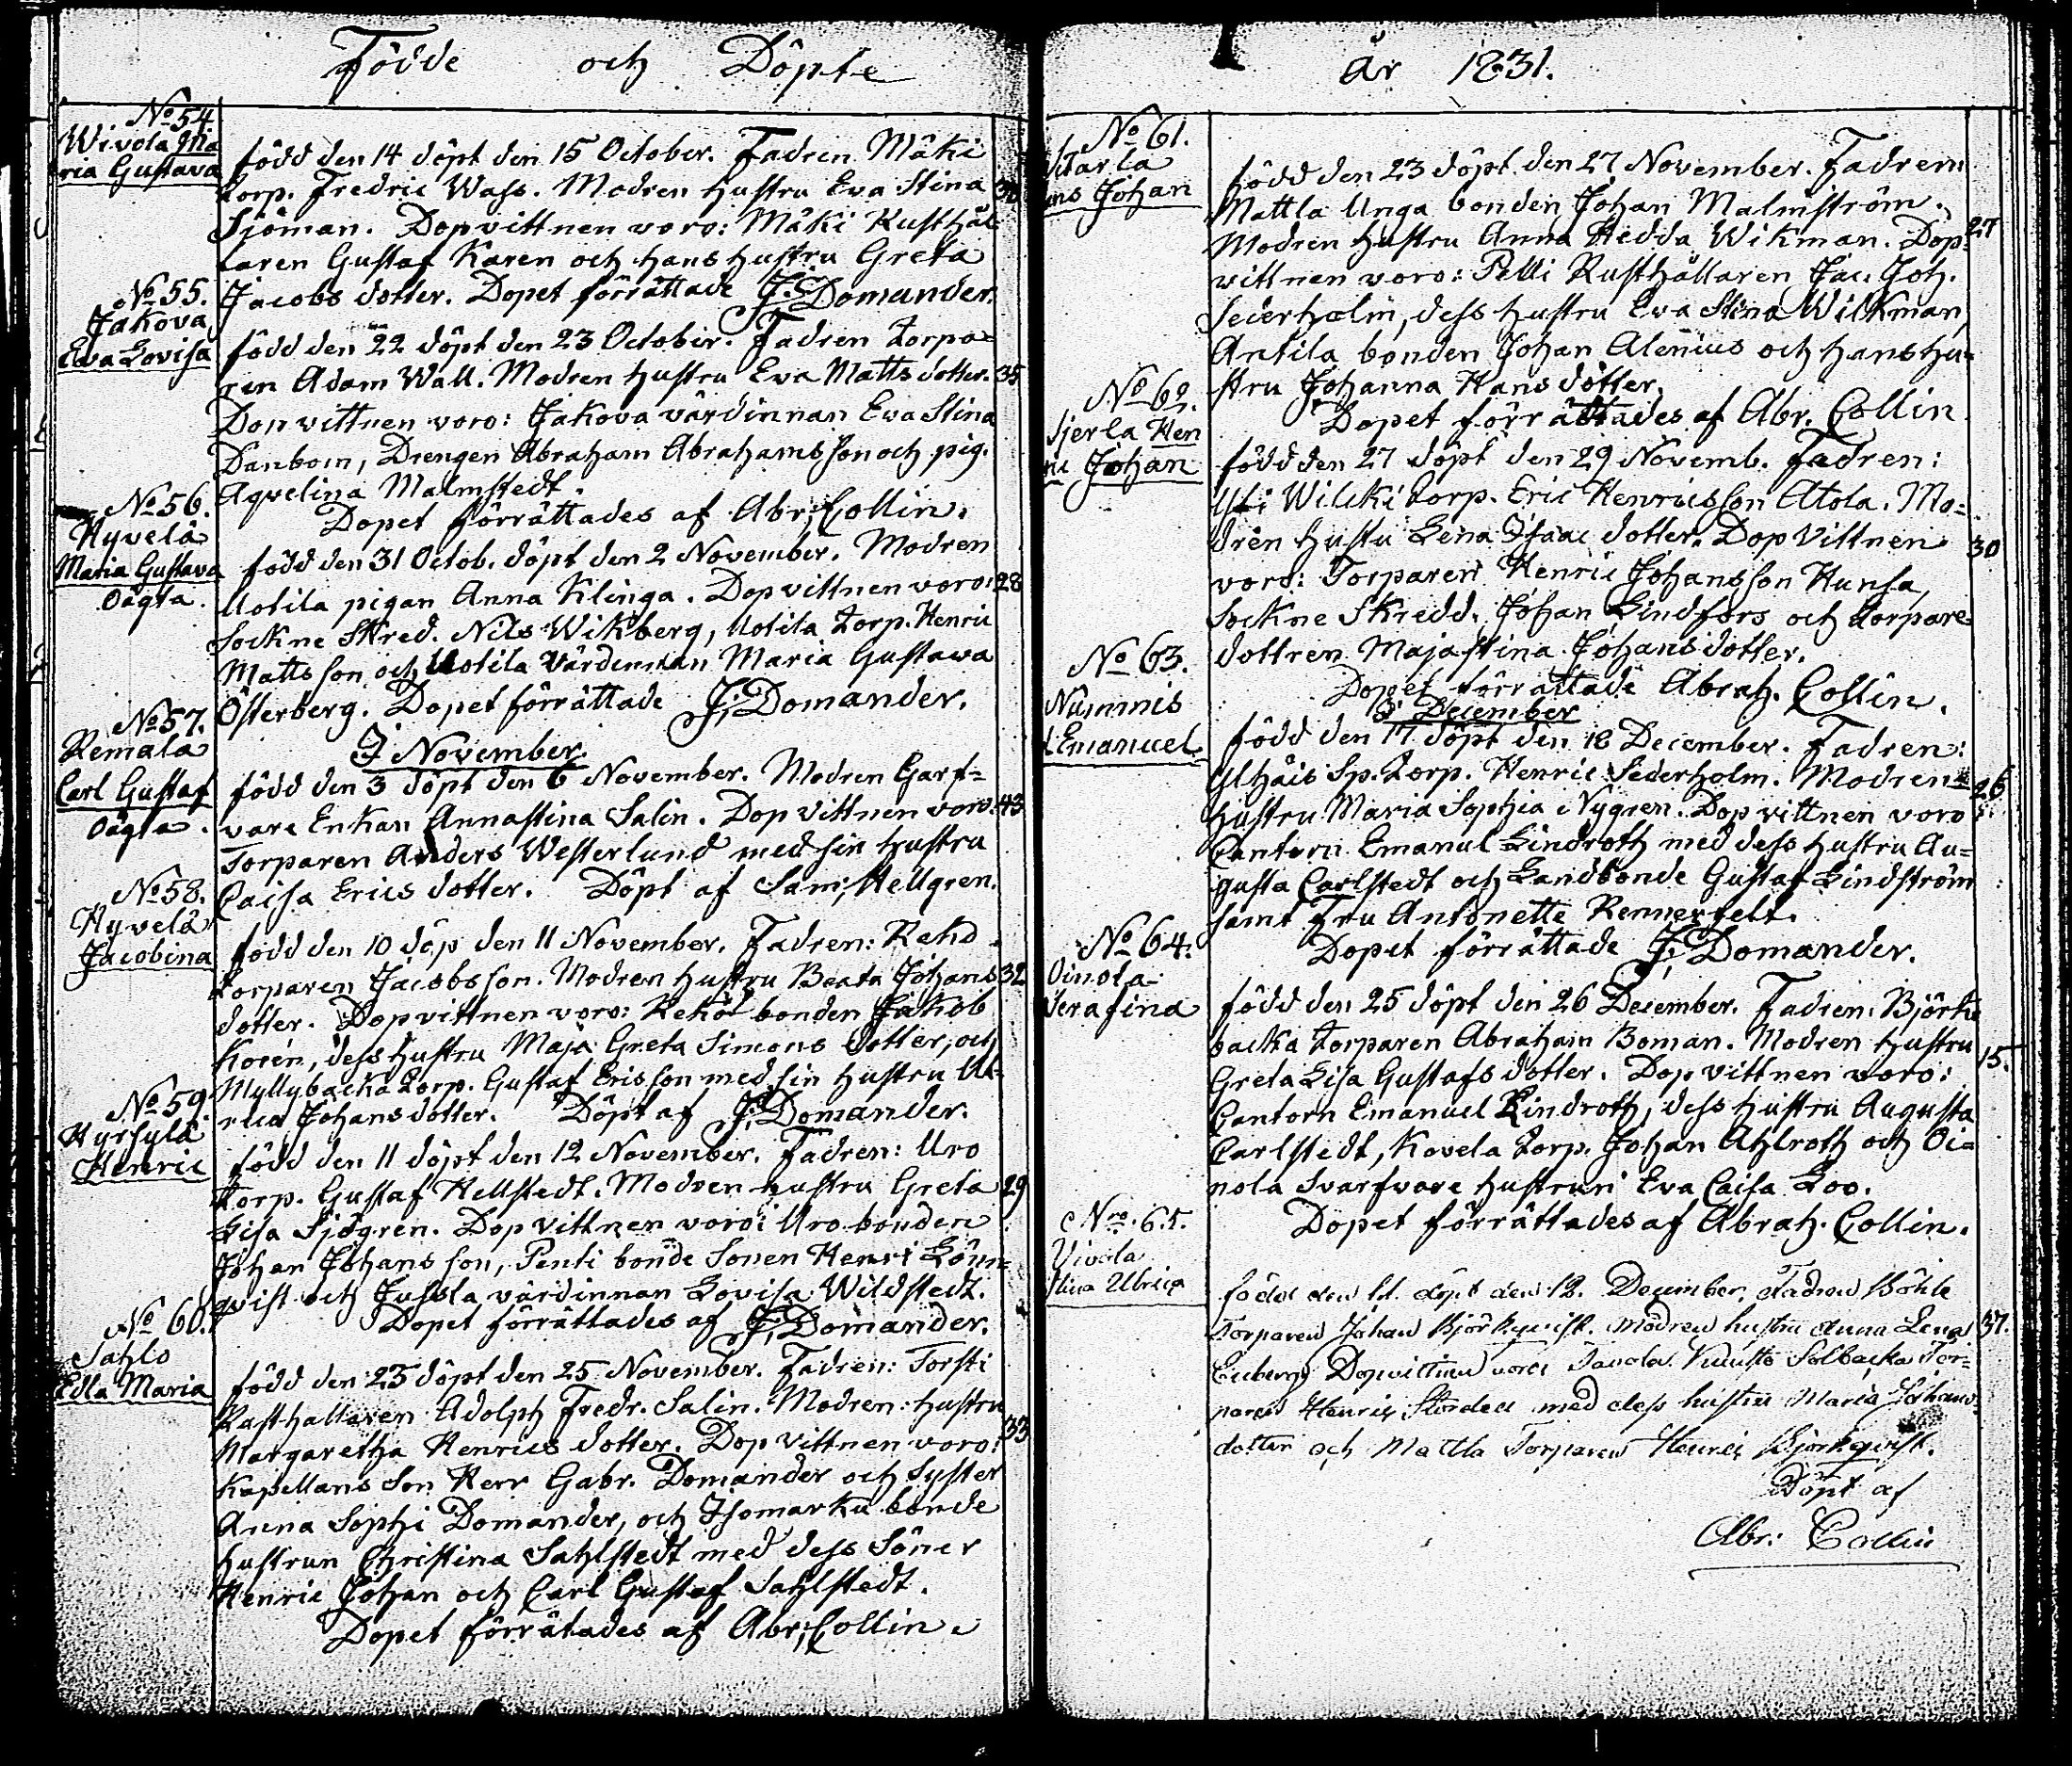 Födde och Döpte
No 54.
Wivola Ma
ria Gustava
född den 14 döpt den 15 October. Fadren Mäki
torp. Fredric Wass. Modren hustru Eva Stina
Sjöman. Dopvittnen voro: Mäki Rusthål
laren Gustaf Karen och hans hustru Greta
Jacobs dotter. Dopet förrättade J. Domander.
No 55.
Jakova
Eva Lovisa
född den 22 döpt den 23 October. Fadren torpa=
ren Adam Wall. Modren hustru Eva Matts dotter. 35
Dopvittnen voro: Jakova värdinnan Eva Stina
Danbom, Drengen Abraham Abrahamsson och pig.
Aqvelina Malmstedt.
Dopet förrättades af Abr; Collin.
No 56.
Hyvelä
Maria Gustava
Oägta.
född den 31 Octob. döpt den 2 November. Modren
Uotila pigan Anna Klinga. Dopvittnen voro: 28
Sockne Skred. Nils Wikberg, Uotila torp. Henric
Matts son och Uotila värdinnan Maria Gustava
Österberg. Dopet förrättade J; Domander.
J November.
No 57.
Remala
Carl Gustaf
Oägta.
född den 3 döpt den 6 November. Modren Garf=
vare Enkan Annastina Salin. Dopvittnen voro: 43
Torparen Anders Westerlund med sin hustru
Caisa Erics dotter. Döpt af Sam; Hellgren.
No 58.
Hyvelä
Jacobina
född den 10 döp den 11 November. Fadren: Rehd
torparen Jacobsson. Modren hustru Beata Johans 32
dotter. Dopvittnen voro: Rehöl bonden Jakob
Korén, dess hustru Maja Greta Simons dotter, och
Myllybacka torp. Gustaf Ericsson med sin hustru Ul=
rica Johans dotter. Döpt af J; Domander.
No 59.
Hyrsylä
Henric
född den 11 döpt den 12 November. Fadren: Uro
torp. Gustaf Hellstedt. Modren hustru Greta 29
Lisa Sjögren. Dopvittnen voro: Uro bonden
Johan Johans son, Penti bonde Sonen Henri Lönn=
qvist och Jussla värdinnan Lovisa Wildstedt.
Dopet förrättades af J; Domander.
No 60.
Sahlo
Edla Maria
född den 23 döpt den 25 November. Fadren: Torsti
Rusthallaren Adolph Fredr. Salin. Modren: hustru
Margaretha Henrics dotter. Dopvittnen voro: 33
Kapellans Son Herr Gabr. Domander och Syster
Anna Sophi Domander, och Isomarku bonde
hustrun Christina Sahlstedt med dess Söner
Henric Johan och Carl Gustaf Sahlstedt.
Dopet förrätades af Abr; Collin.
år 1831.
No 61.
ns Johan
född den 23 döpt den 27 November. Fadren:
Mattla Unga bonden Johan Malmström.
Modren hustru Anna Hedda Wikman. Dop= 27
vittnen voro: Pelli Rusthållaren Jac. Joh.
Sederholm, dess hustru Eva Stina Wilkman,
Antila bonden Johan Alenius och hans hu=
stru Johanna Hans dotter.
Dopet förrättades af Abr. Collin
No 62.
Sjerla Hen
Johan
född den 27 döpt den 29 Novemb. Fadren:
Wilcki torp. Eric Henricsson Atola. Mo=
dren hustu Lena Isaac dotter. Dop Vittnen 30
voro: Torparen Henric Johansson Hunsa,
Sockne Skredd. Johan Lindfors och torpare
dottren Majastina Johans dotter.
Dopet förrättade Abrah. Collin.
J December
No 63.
Nummis
Emanuel
född den 17 döpt den 18 December. Fadren:
Sp. torp. Henric Sederholm. Modren
hustru Maria Sophia Nygren. Dopvittnen voro: 26
Cantorn Emanul Lindroth med dess hustru Au=
gusta Carlstedt och Landbonde Gustaf Lindström
samt Fru Antonette Rennerfelt.
Dopet förrättade J; Domander.
No 64.
Oinola
Serafina
född den 25 döpt den 26 December. Fadren: Björk
backa torparen Abraham Boman. Modren hustru
Greta Lisa Gustafs dotter. Dopvittnen voro: 15.
Cantorn Emanuel Lindroth, dess hustru Augusta
Carlstedt, Kovela torp. Johan Ahlroth och Oi=
nola Svarfvare hustrun Eva Caisa Loo.
Dopet förrättades af Abrah. Collin.
Nro. 65.
Vivola
Stina Ulrica
född den 11. döpt den 12. December, Fadren Böhle
Torparen Johan Björkqvist. Modren hustru Anna Lena 37.
Dopvittnen voro Solbacka Tor=
paren Henric med dess hustru Maria Johans
dotter och Mattla Torparen Henric Björkqvist.
Döpt af
Abr: Collin